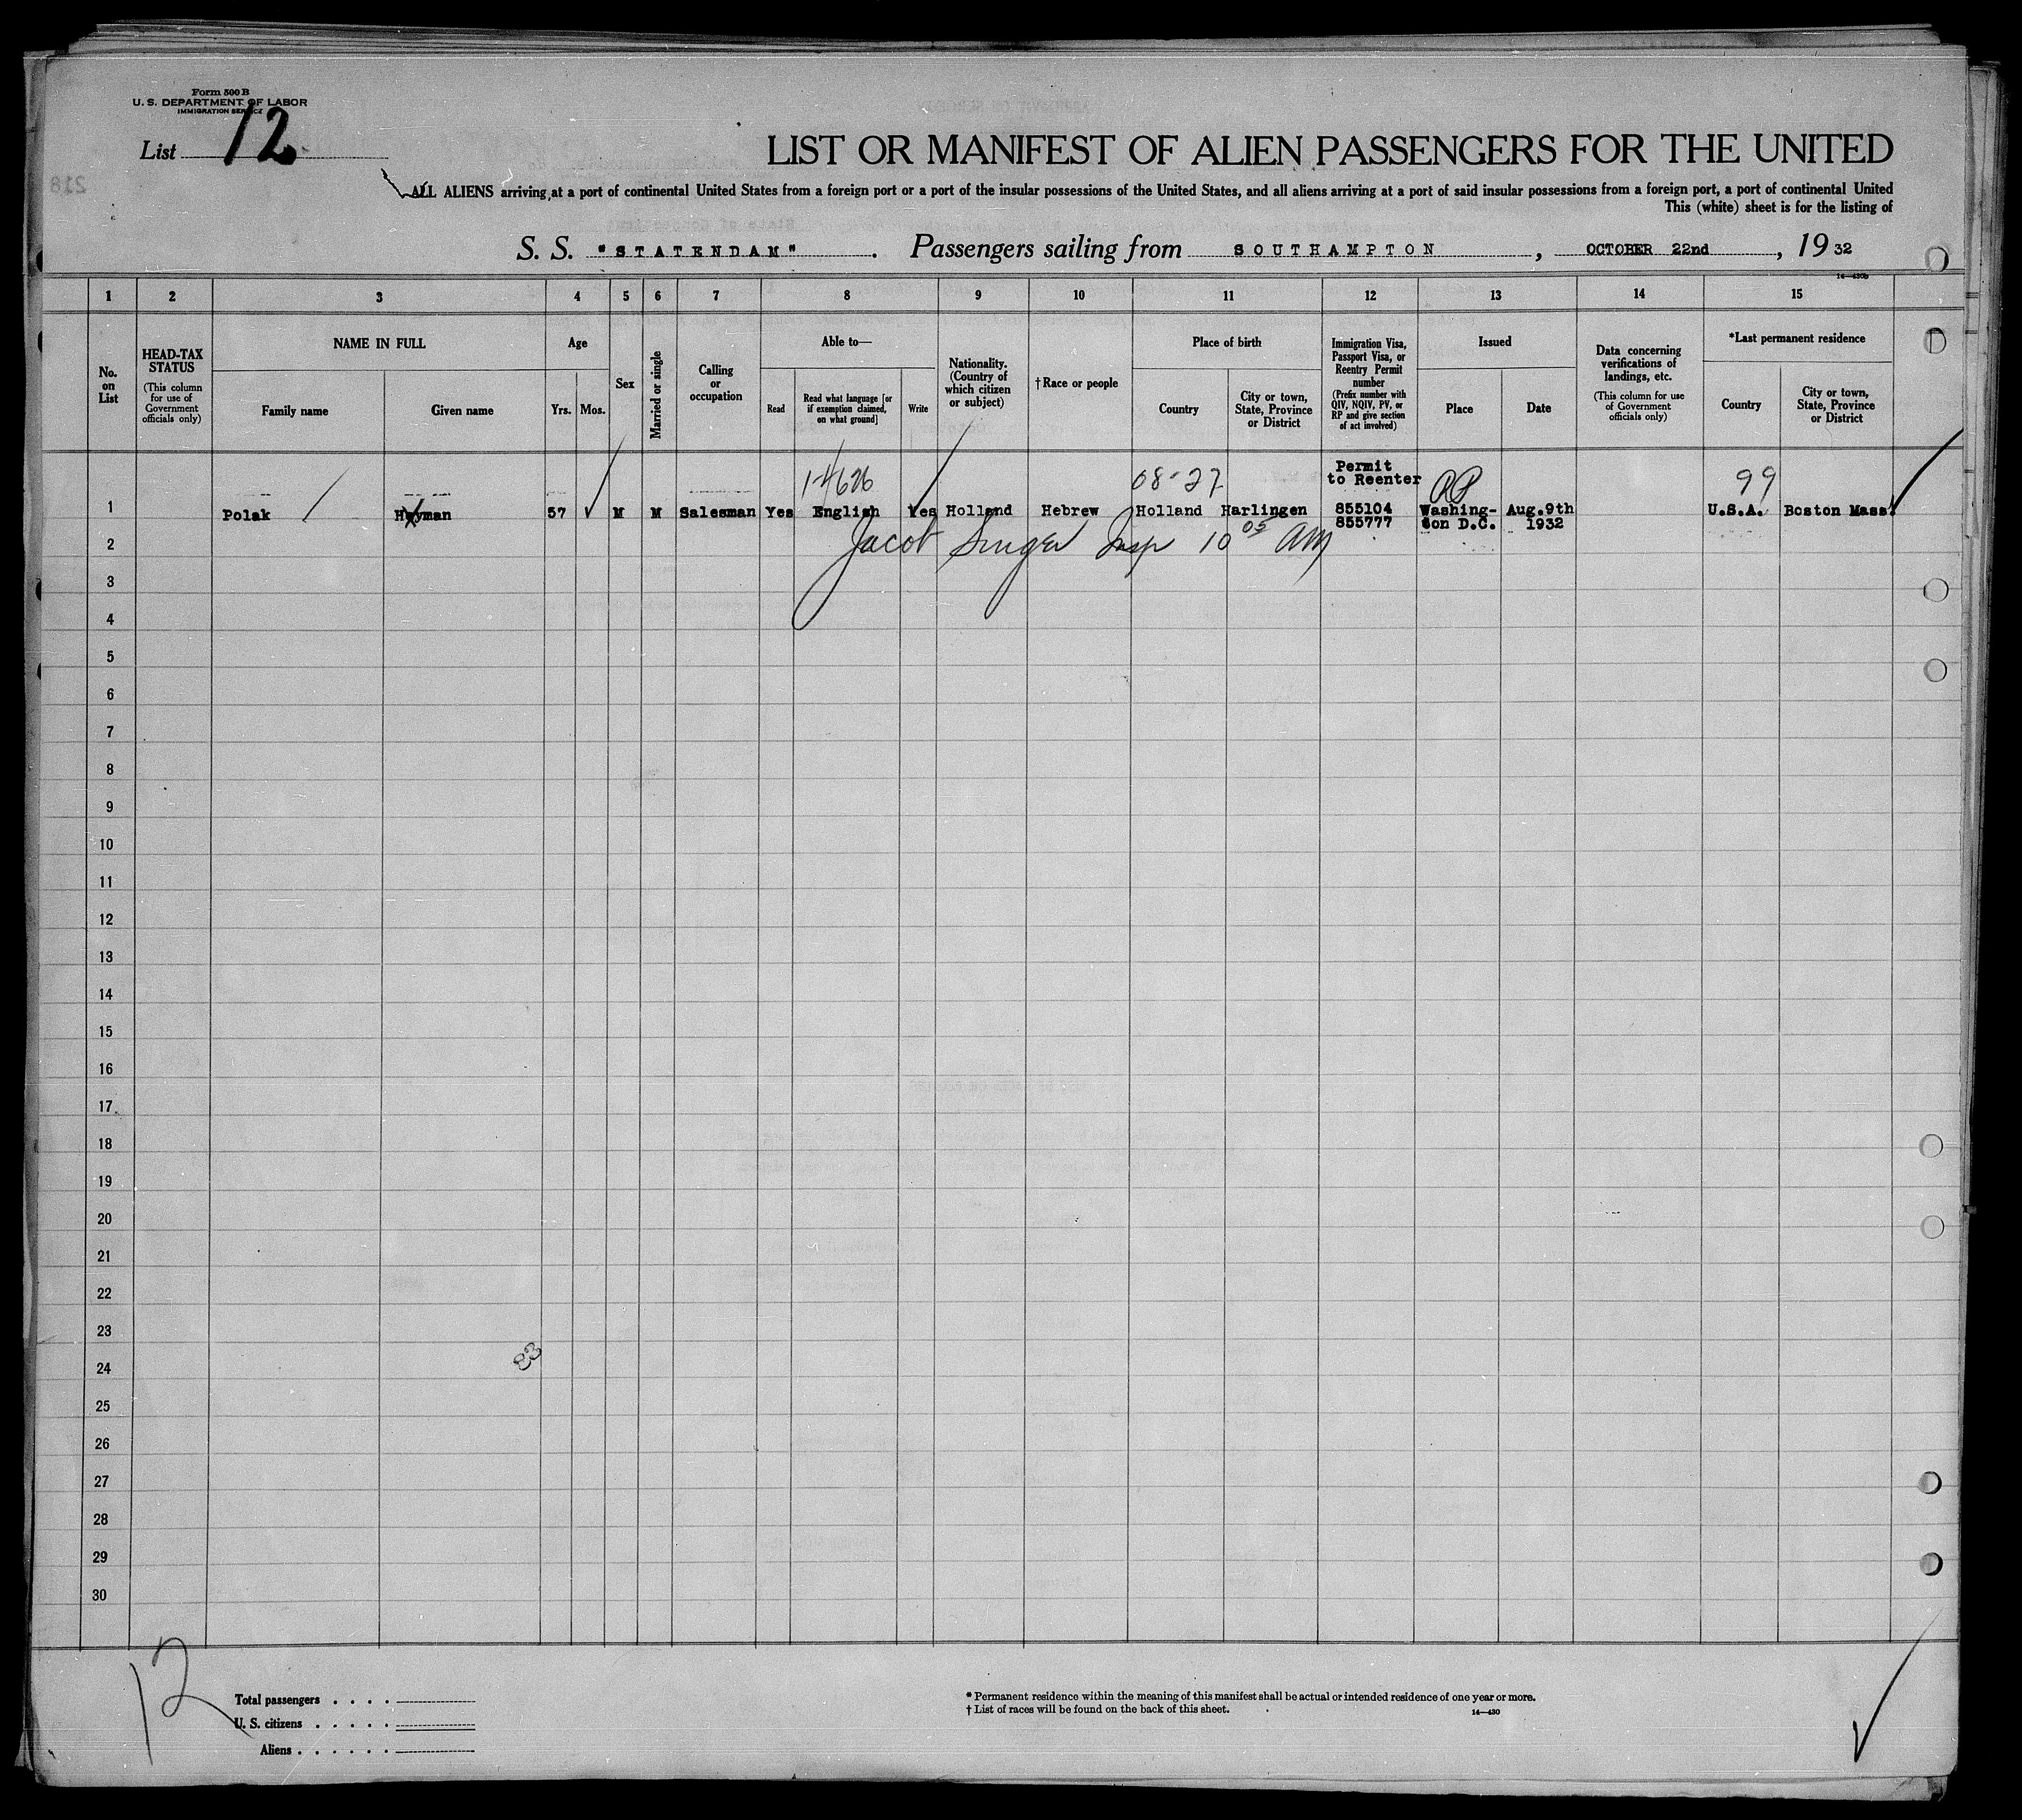 Form 500 B
U. S. DEPARTMENT OF LABOR
IMMIGRATION SERVICE
List 12
218
LIST OR MANIFEST OF ALIEN PASSENGERS FOR THE UNITED
ALL ALIENS arriving at a port of continental United States from a foreign port or a port of the insular possessions of the United States, and all aliens arriving at a port of said insular possessions from a foreign port, a port of continental United
This (white) sheet is for the listing of
S. S. "STATENDAM". Passengers sailing from SOUTHAMPTON, OCTOBER 22nd, 19 32
14—430b
1 2 3 4 5 6 7 8 9 10 11 12 13 14 15
No. on List
HEAD-TAX STATUS (This column for use of Government officials only)
NAME IN FULL
Family name
Given name
Age
Yrs.
Mos.
Sex
Married or single
Calling or occupation
Able to—
Read
Read what language [or if exemption claimed, on what ground]
Write
Nationality. (Country of which citizen or subject)
† Race or people
Place of birth
Country
City or town, State, Province or District
Immigration Visa, Passport Visa, or Reentry Permit number (Prefix number with QIV, NQIV, PV, or RP and give section of act involved)
Issued
Place
Date
Data concerning verifications of landings, etc. (This column for use of Government officials only)
*Last permanent residence
Country
City or town, State, Province or District
08-27
Permit to Reenter
RP
99
1 Polak Heyman 57 M M Salesman Yes English Yes Holland Hebrew Holland Harlingen 855104 855777 Washington D.C. Aug.9th 1932 U.S.A. Boston Mass.
Jacob Singer Insp 10 05 AM
2
3
4
5
6
7
8
9
10
11
12
13
14
15
16
17
18
19
20
21
22
23
24
25
26
27
28
29
30
83
12
Total passengers . . . .
U. S. citizens . . . . .
Aliens . . . . . .
* Permanent residence within the meaning of this manifest shall be actual or intended residence of one year or more.
† List of races will be found on the back of this sheet.
14—430